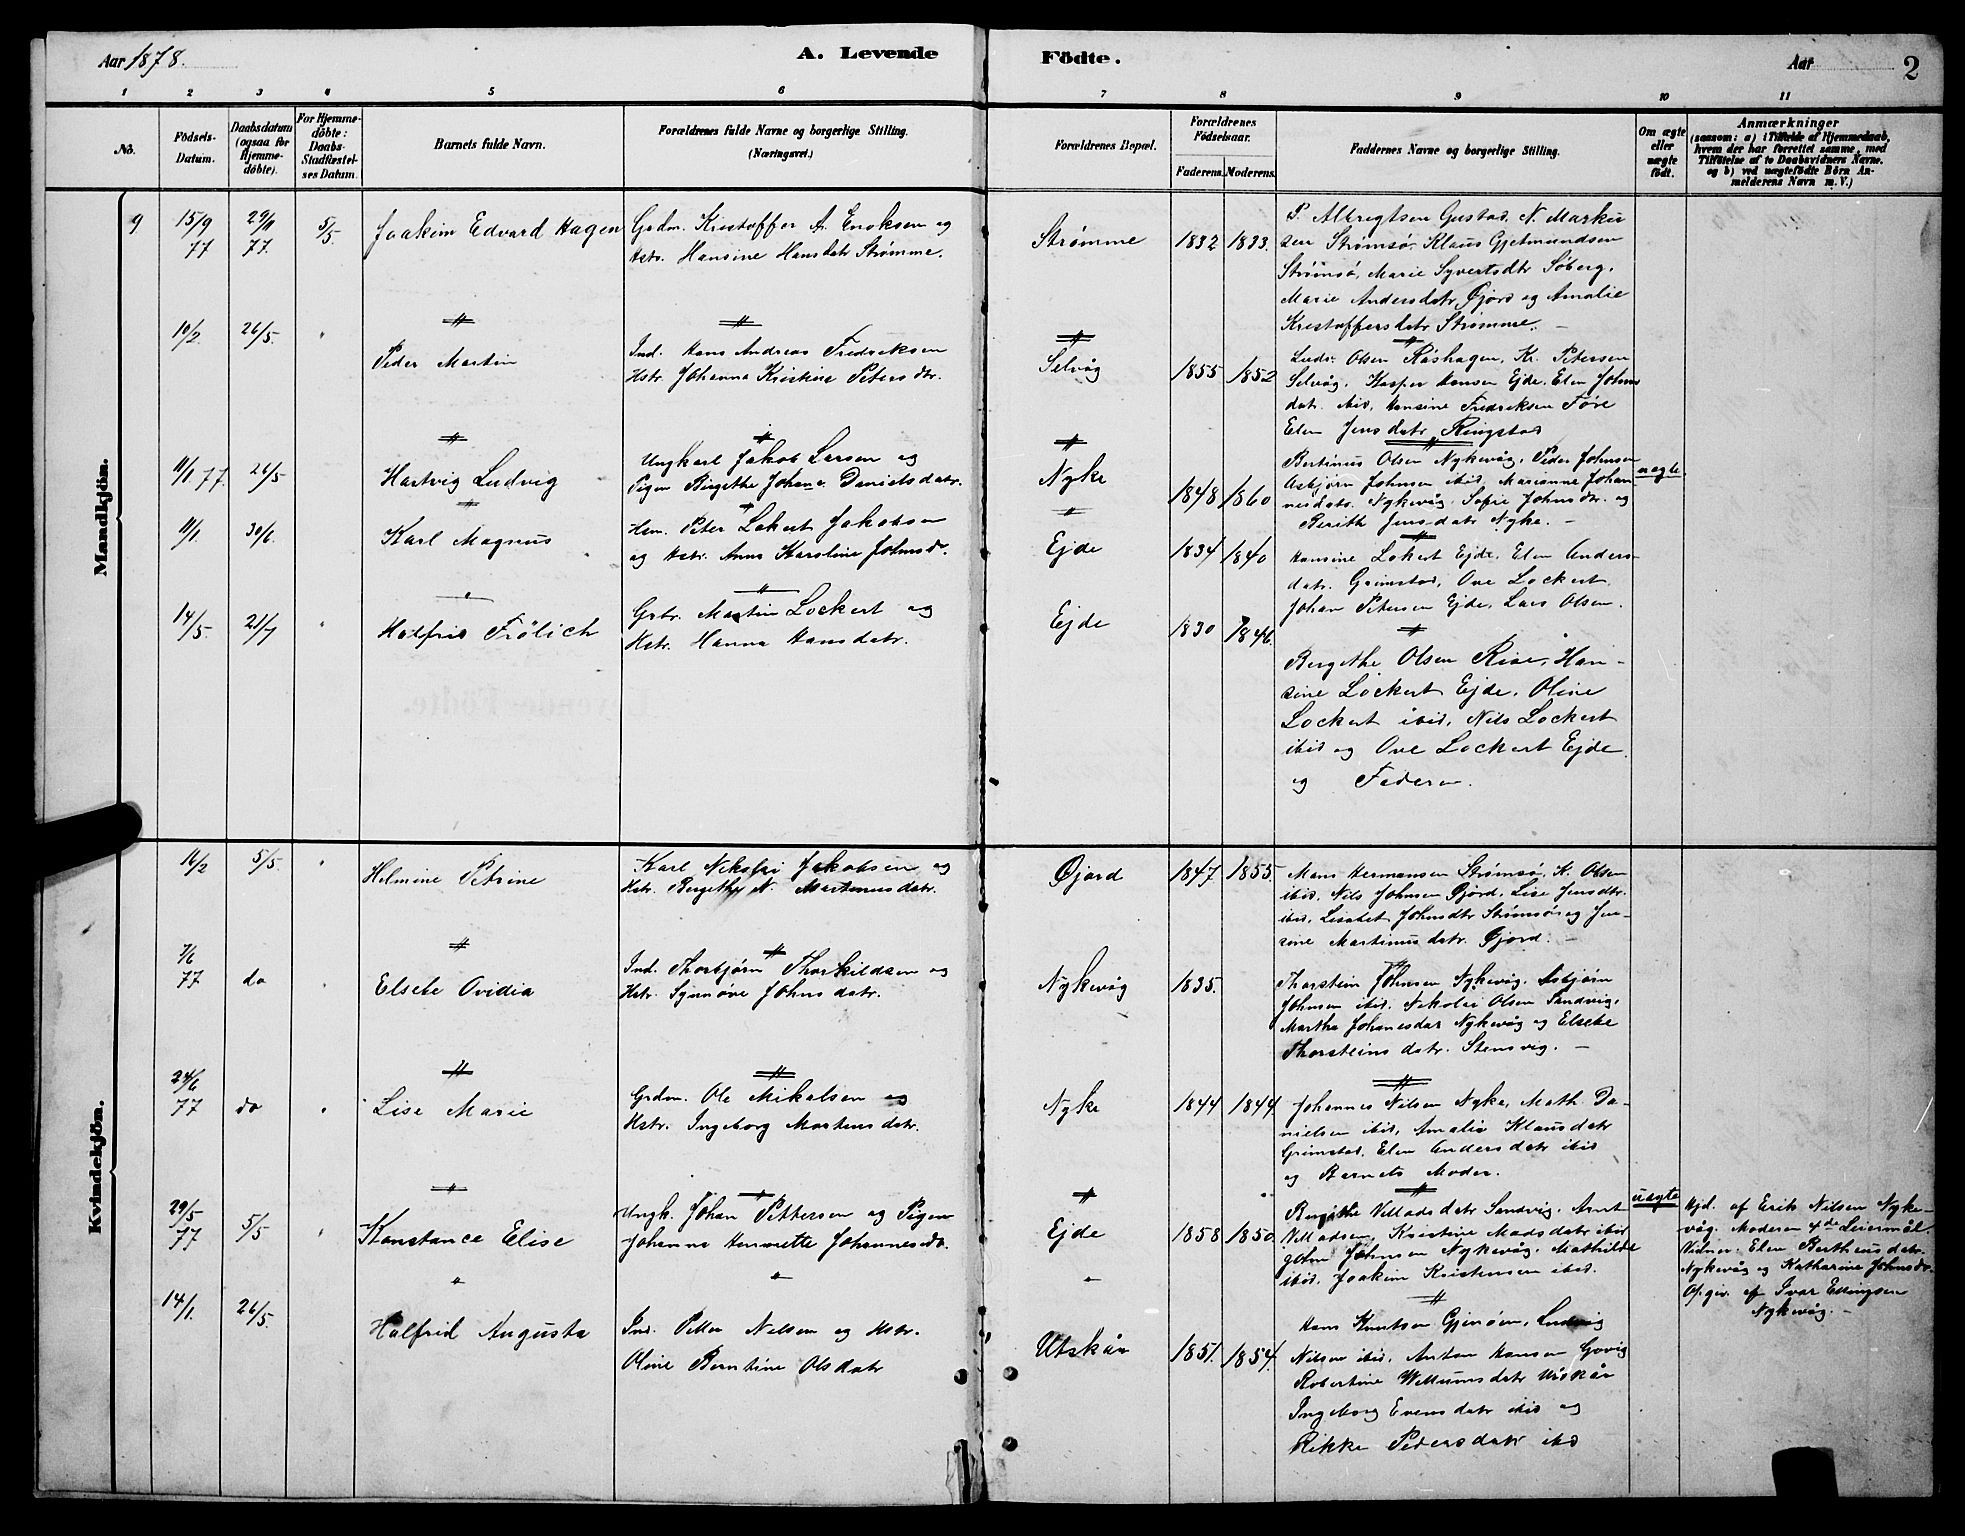 Aar 1878.
A. Levende Födte.
Aar
2
1 2 3 4 5 6 7 8 9 10 11
No.
Födsels-
Datum.
Daabsdatum
(ogsaa for
Hjemme-
döbte).
For Hjemme-
döbte:
Daabs-
Stadfæstel-
ses Datum.
Barnets fulde Navn.
Forældrenes fulde Navne og borgerlige Stilling.
(Næringsvei.)
Forældrenes Bopæl.
Forældrenes
Födselsaar.
Faderens. Moderens.
Faddernes Navne og borgerlige Stilling.
Om ægte
eller
uægte
født.
Anmærkninger
(saasom: a) i Tilfælde af Hjemmedaab,
hvem der har forrettet samme, med
Tilföielse af to Daabsvidners Navne.
og b) ved uægtefødte Börn An-
melderens Navn m. V.)
Mandkjön.
9
15/9
77
29/11
77.
5/5.
Joakim Edvard Hagen
Grdm. Kristoffer A. Enoksen og
Hstr. Hansine Hansdatr Strømme.
Strømme
1832 1833.
P. Albregtsen Gustad, N. Marku
sen Strømsø, Klaus Gjetmundsen
Strømsø, Marie Syvertsdtr Søberg,
Marie Andersdatr Øjord og Amalie
Kristoffersdatr Strømme. —
10/2. 26/5. "
Peder Martin
Ind. Hans Andreas Fredriksen
Hstr. Johanna Kristine Petersdtr.
Selvåg
1855 1852
Ludv. Olsen Råshagen, Kr. Petersen
Selvåg, Kasper Hansen Ejde, Elen Johns
datr. ibid, Hansine Fredriksen Føre
Elen Jensdatr Ringstad
11/1 77. 26/5
Hartvig Ludvig
Ungkarl Jakob Larsen og
Pigen Birgethe Johana Danielsdatr.
Nyke
1848 1860
Bertinus Olsen Nykevåg, Peder Johnsen
Asbjørn Johnsen ibid, Marianne Johan-
nesdatr. Nykevåg, Sofie Johnsdtr. og
Berith Jensdatr Nyke. —
uægte.
11/1. 30/6.
Karl Magnus
Hsm. Peter Lokert Jakobsen
og Hstr. Anna Karoline Johnsd.
Ejde
1834 1840
Hansine Lokert Ejde, Elen Anders-
datr. Grimstad, Ove Lockert
Johan Petersen Ejde, Lars Olsen.
14/5 21/7 "
Halfrid Frölich
Gstr. Martin Lockert og
Hstr. Hanna Hansdatr.
Ejde
1830 1846.
Bergethe Olsen Rise, Han-
sine Lockert Ejde, Oline
Lockert ibid, Nils Lockert
ibid og Ove Lockert Ejde
og Faderen.
Kvindekjön.
16/2 5/5. "
Helmine Petrine
Karl Nikolai Jakobsen og
Hstr. Bergethe N. Martinusdatr.
Øjord
1847 1855.
Mons Hermansen Strømsø, K. Olsen
ibid, Nils Johnsen Øjord, Lise Jensdtr.
ibid, Lisabet Johnsdtr Strømsø og Jen-
sine Martinusdatr. Øjord. —
7/6
77 do "
Elsebe Ovidia
Ind. Thorbjørn Thorkildsen og
Hstr. Synnøve Johnsdatr.
Nykevåg
1835.
Thorstein Johnsen Nykevåg, Asbjørn
Johnsen ibid, Nikolai Olsen Sandvig,
Martha Johanesdatr Nykevåg og Elsebe
Thorsteinsdatr. Stensvig. —
24/6
77 do "
Lise Marie
Grdm. Ole Mikalsen og
Hstr. Ingeborg Mortensdatr.
Nyke
1844 1844
Johannes Nilsen Nyke, Math. Da-
nielsen ibid, Amalia Klausdatr
Grimstad, Elen Andersdatr ibid
og Barnets Moder.
29/5
77 5/5 "
Konstance Elise
Ungk. Johan Pettersen og Pigen
Johanna Henriette Johannesdr.
Ejde
1858 1850
Bergithe Villadsdatr Sandvig, Arnt
Villadsen, Kristine Madsdatr ibid
John Johnsen Nykevåg, Mathilde
ibid, Joakim Kristensen ibid.
uægte
Hjd. af Erik Nilsen Nyke-
våg. Moderen 4de Leiermål
Vidner: Elen Bertheusdatr.
Nykevåg og Katharine Johnsdr.
Opgiv. af Ivar Ellingsen
Nykevåg. —
14/1. 26/5.
Halfrid Augusta
Ind. Petter Nilsen og Hstr.
Oline Berntine Olsdatr
Utskår
1851. 1854.
Hans Knutsen Gjenøen, Ludvig
Nilsen ibid, Anton Hansen Govig
Robertine Wellumsdatr Utskår
Ingeborg Evensdatr ibid og
Rikke Pedersdatr ibd